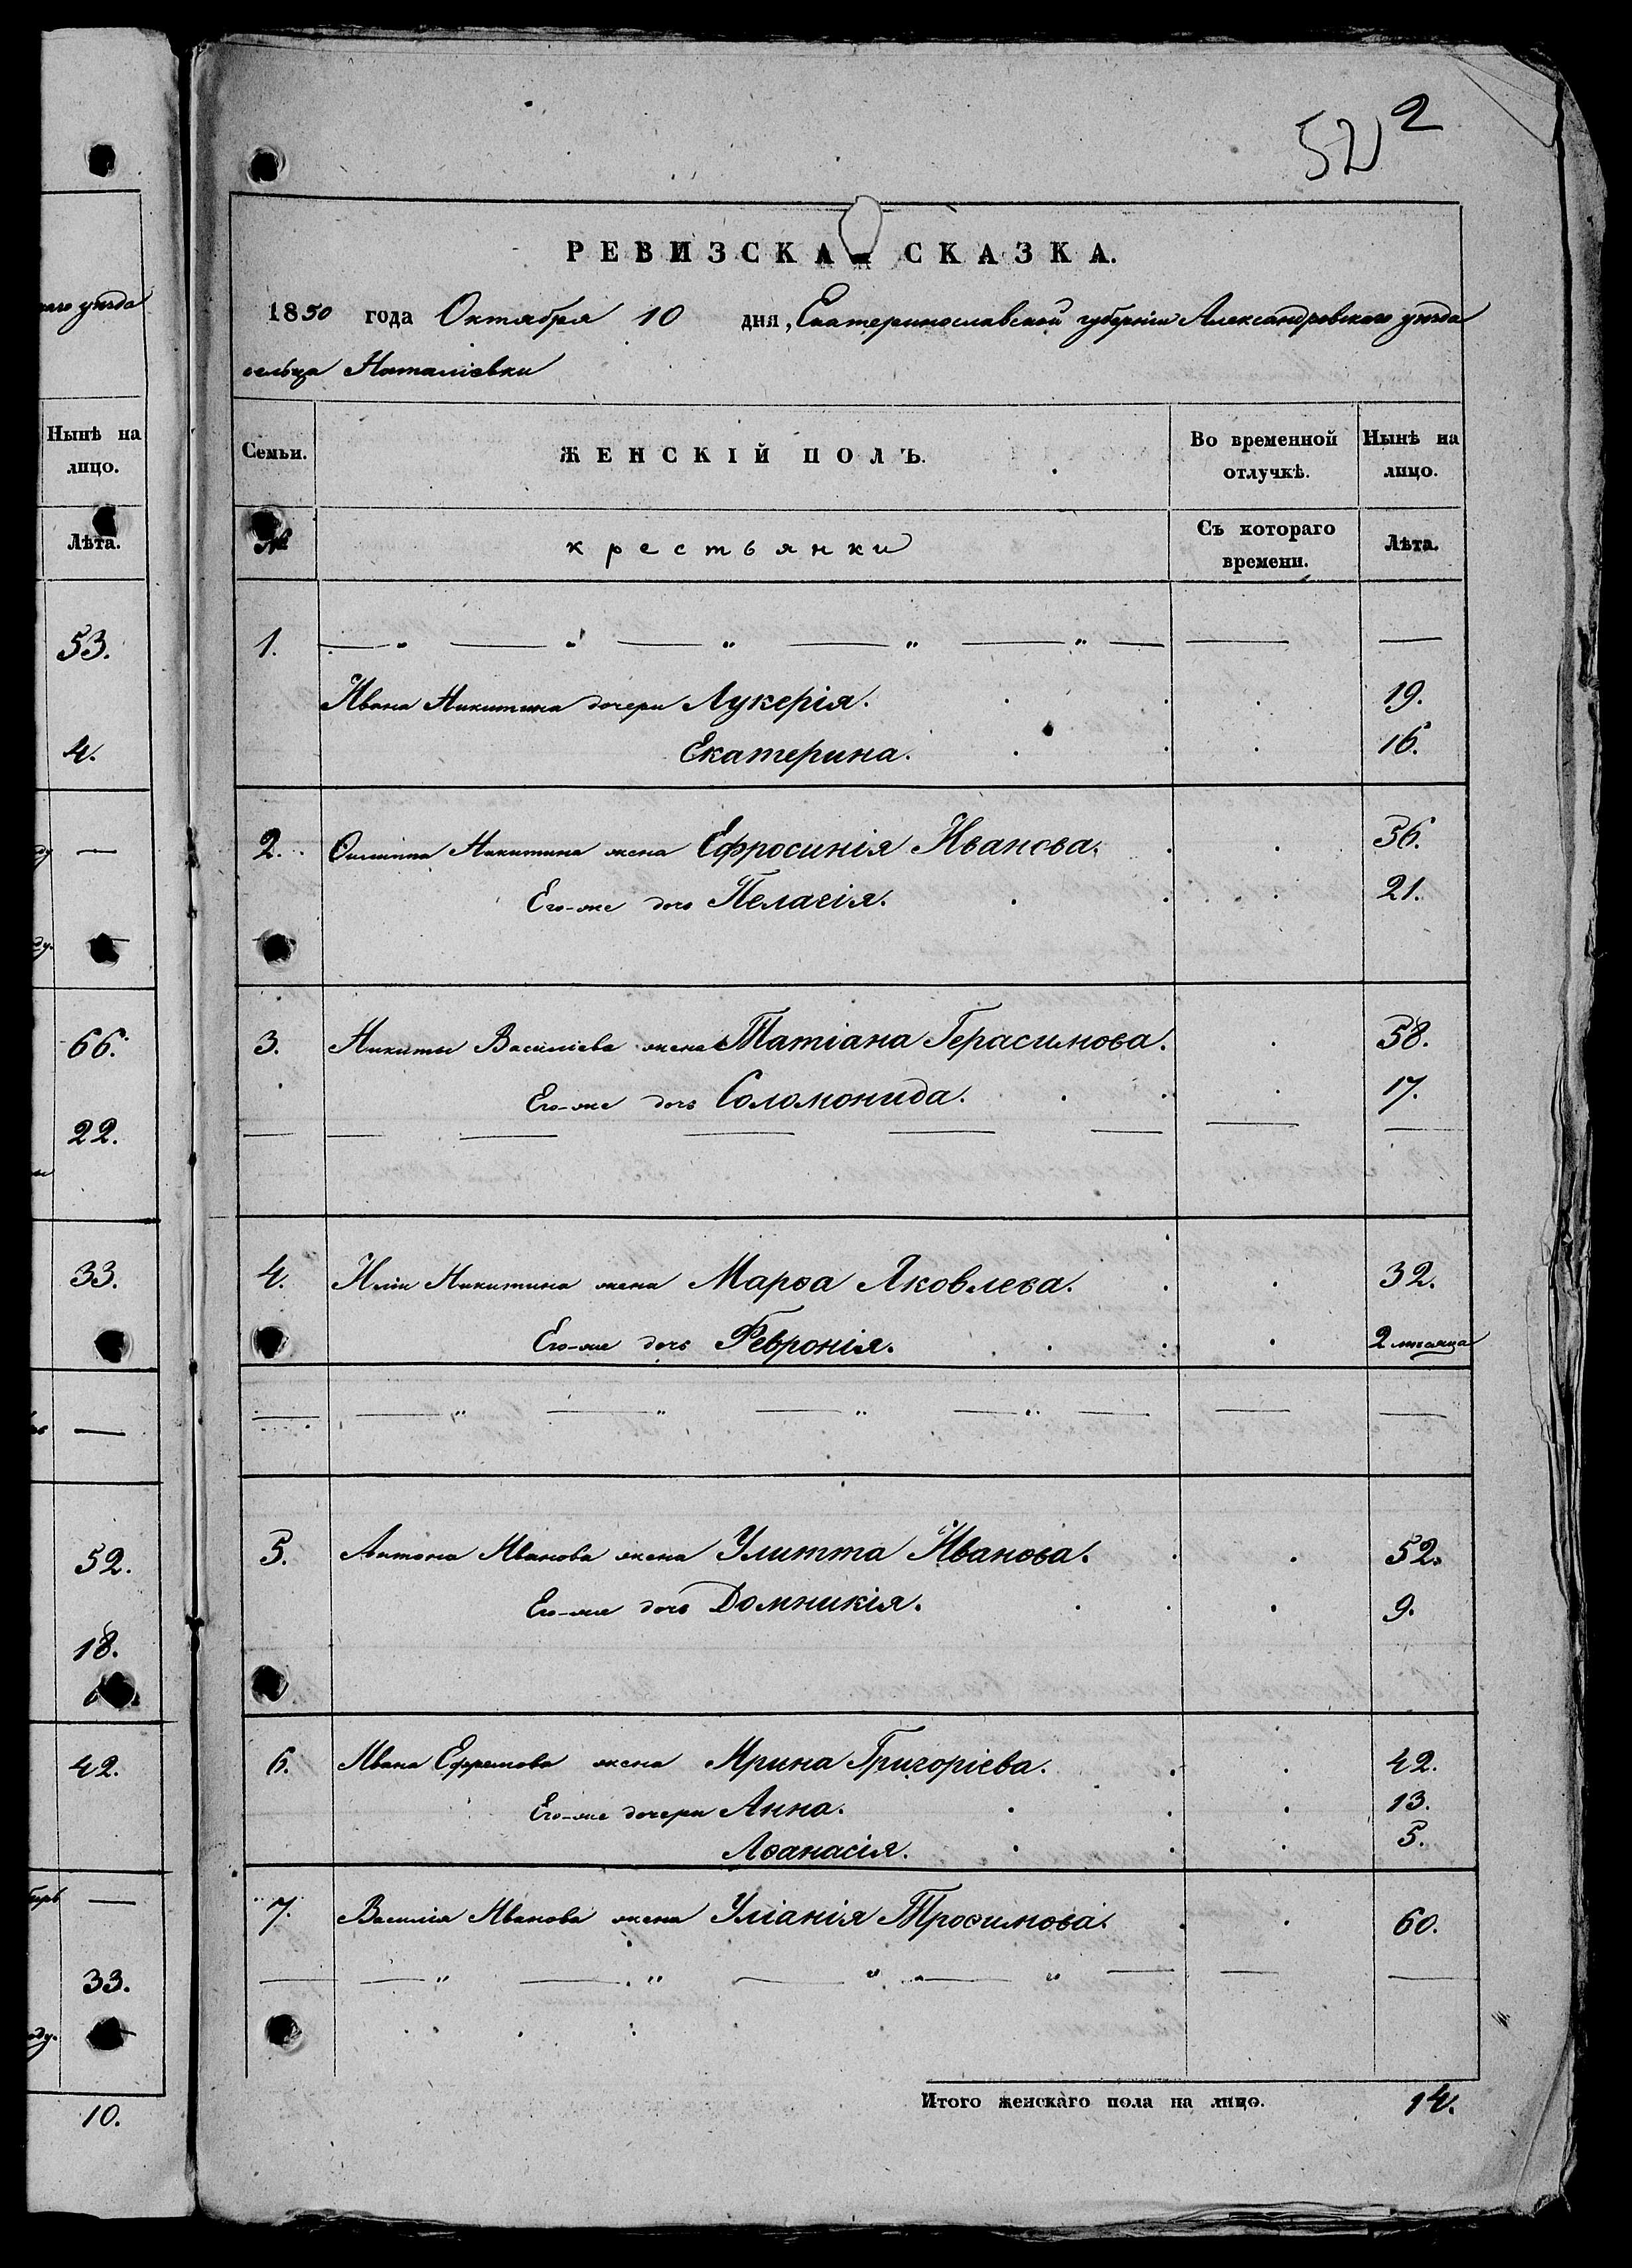 52 2
РЕВИЗСКАЯ СКАЗКА.
1850 года Октября 10 дня, Екатеринославской губерніи Александровскаго уѣзда
сельца Наталіевки
Семьи. ЖЕНСКІЙ ПОЛЪ. Во временной отлучкѣ. Нынѣ на лицо.
№ крестьянки Съ котораго времени. Лѣта.
1. — " — " — " — " — " — — —
Ивана Никитина дочери Лукерія. 19.
Екатерина. 16.
2. Филиппа Никитина жена Ефросинія Иванова. 56.
Его-же дочь Пелагія. 21.
3. Никиты Василіева жена Татіана Герасимова. 58.
Его-же дочь Соломонида. 17.
4. Иліи Никитина жена Марѳа Яковлева. 32.
Его-же дочь Февронія. 2 мѣсяца
5. Антона Иванова жена Улитта Иванова. 52.
Его-же дочь Домникія. 9.
6. Ивана Ефремова жена Ирина Григоріева. 42.
Его-же дочери Анна. 13.
Аѳанасія. 5.
7. Василія Иванова жена Уліанія Трофимова. 60.
Итого женскаго пола на лицо. 14.
аго уѣзда
Нынѣ на
лицо.
Лѣта.
53.
4.
—
66.
22.
33.
—
52.
18.
42.
—
33.
оду.
10.